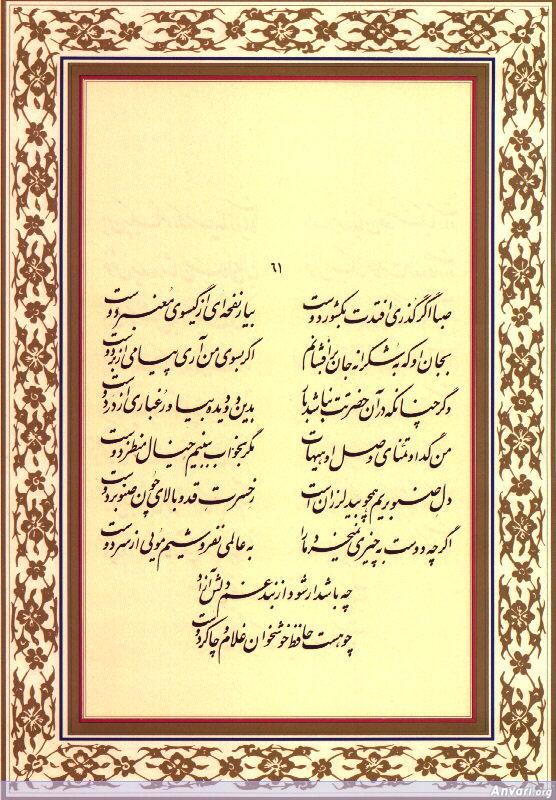 ٦١
صبا اگر گذری افتدت بکشور دوست بیار نفحه‌ای از گیسوی معنبر دوست
بجان او که بشکرانه جان برافشانم اگر بسوی من آری پیامی از بر دوست
وگر چنانکه در آن حضرتت نباشد بار بدین دو دیده بیاور غباری از در دوست
من گدا و تمنای وصل او هیهات مگر بخواب ببینم خیال منظر دوست
دل صنوبریم همچو بید لرزان است ز حسرت قد و بالای چون صنوبر دوست
اگر چه دوست به چیزی نمیخرد ما را به عالمی نفروشیم مویی از سر دوست
چه باشد ار شود از بند غم دلش آزاد
چو هست حافظ خوشخوان غلام و چاکر دوست
AnVari.org